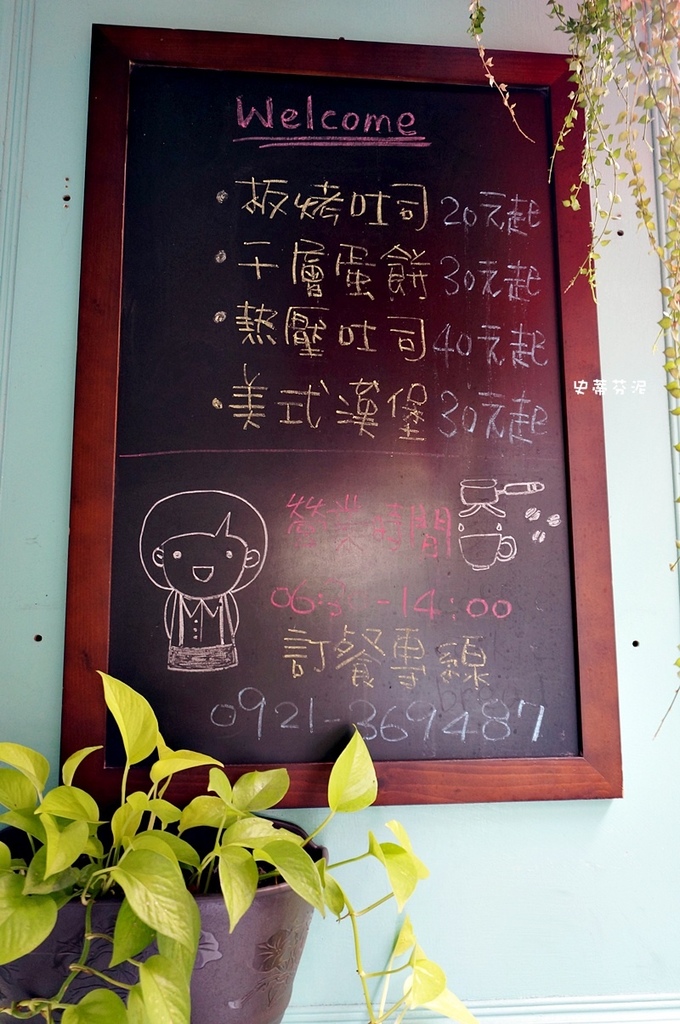 Welcome
·板烤吐司20元起
·千層蛋餅30元起
·熱壓吐司40元起
·美式漢堡30元起
史蒂芬泥
營業時間
06:30-14:00
訂餐專線
0921-369487